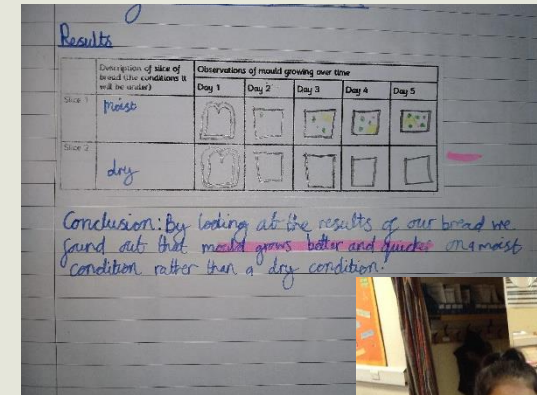 Results
Description of slice of bread (the conditions it will be under)
Observations of mould growing over time
Day 1 Day 2 Day 3 Day 4 Day 5
Slice 1 moist
Slice 2 dry
Conclusion: By looking at the results of our bread we
found out that mould grows better and quicker on a moist
condition rather than a dry condition.